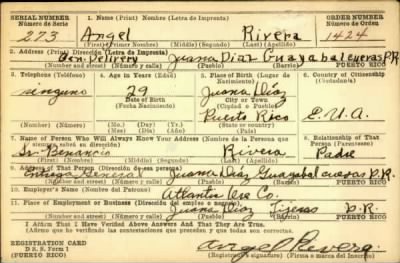 SERIAL NUMBER 1. Name (Print) Nombre (Letra de Imprenta) ORDER NUMBER
Número de Serie Número de Orden
273 Angel Rivera 1424
(First) Primer Nombre (Middle) (Segundo) (Last) (Apellido)
2. Address (Print) Dirección (Letra de Imprenta)
Gen. Delivery Juana Diaz Guayabal cuevas P.R.
(Number and street) Número y calle) (Town) (Pueblo) PUERTO RICO
3. Telephone 4. Age in Years (Edad) 5. Place of Birth (Lugar de 6. Country of Citizenship
(Teléfono) Nacimiento) (Ciudadanía)
ninguno 29 Juana Diaz
Date of Birth City or Town
(Fecha Nacimiento) (Ciudad o Pueblo)
Puerto Rico E.U.A.
(Number) (Número) (Mo.) (Day) (Yr.) (State or country)
(Mes) (Día) (Año)
7. Name of Person Who Will Always Know Your Address (Nombre de la Persona que 8. Relationship of That
siempre sabrá su dirección) Person (Parentesco)
Sr. Venancio Rivera Padre
(First) (Primer Nombre) (Middle) (Segundo) (Last) (Apellido)
9. Address of That Person (Dirección de esa persona)
Entrega General Juana Diaz Guayabal cuevas P.R.
(Number and street) (Número y calle) (Pueblo) PUERTO RICO
10. Employer's Name (Nombre del Patrono)
Atlantic Ore Co.
11. Place of Employment or Business (Dirección del empleo o negocio)
Juana Diaz P.R.
(Number and street) (Número y calle) (Pueblo) PUERTO RICO
I Affirm That I Have Verified Above Answers And That They Are True.
Afirmo que he verificado las contestaciones que preceden y que todas son correctas.
REGISTRATION CARD
D. S. S. Form 1 Angel Rivera
(PUERTO RICO) Registrant's Signature (Firma o marca del Inscrito)